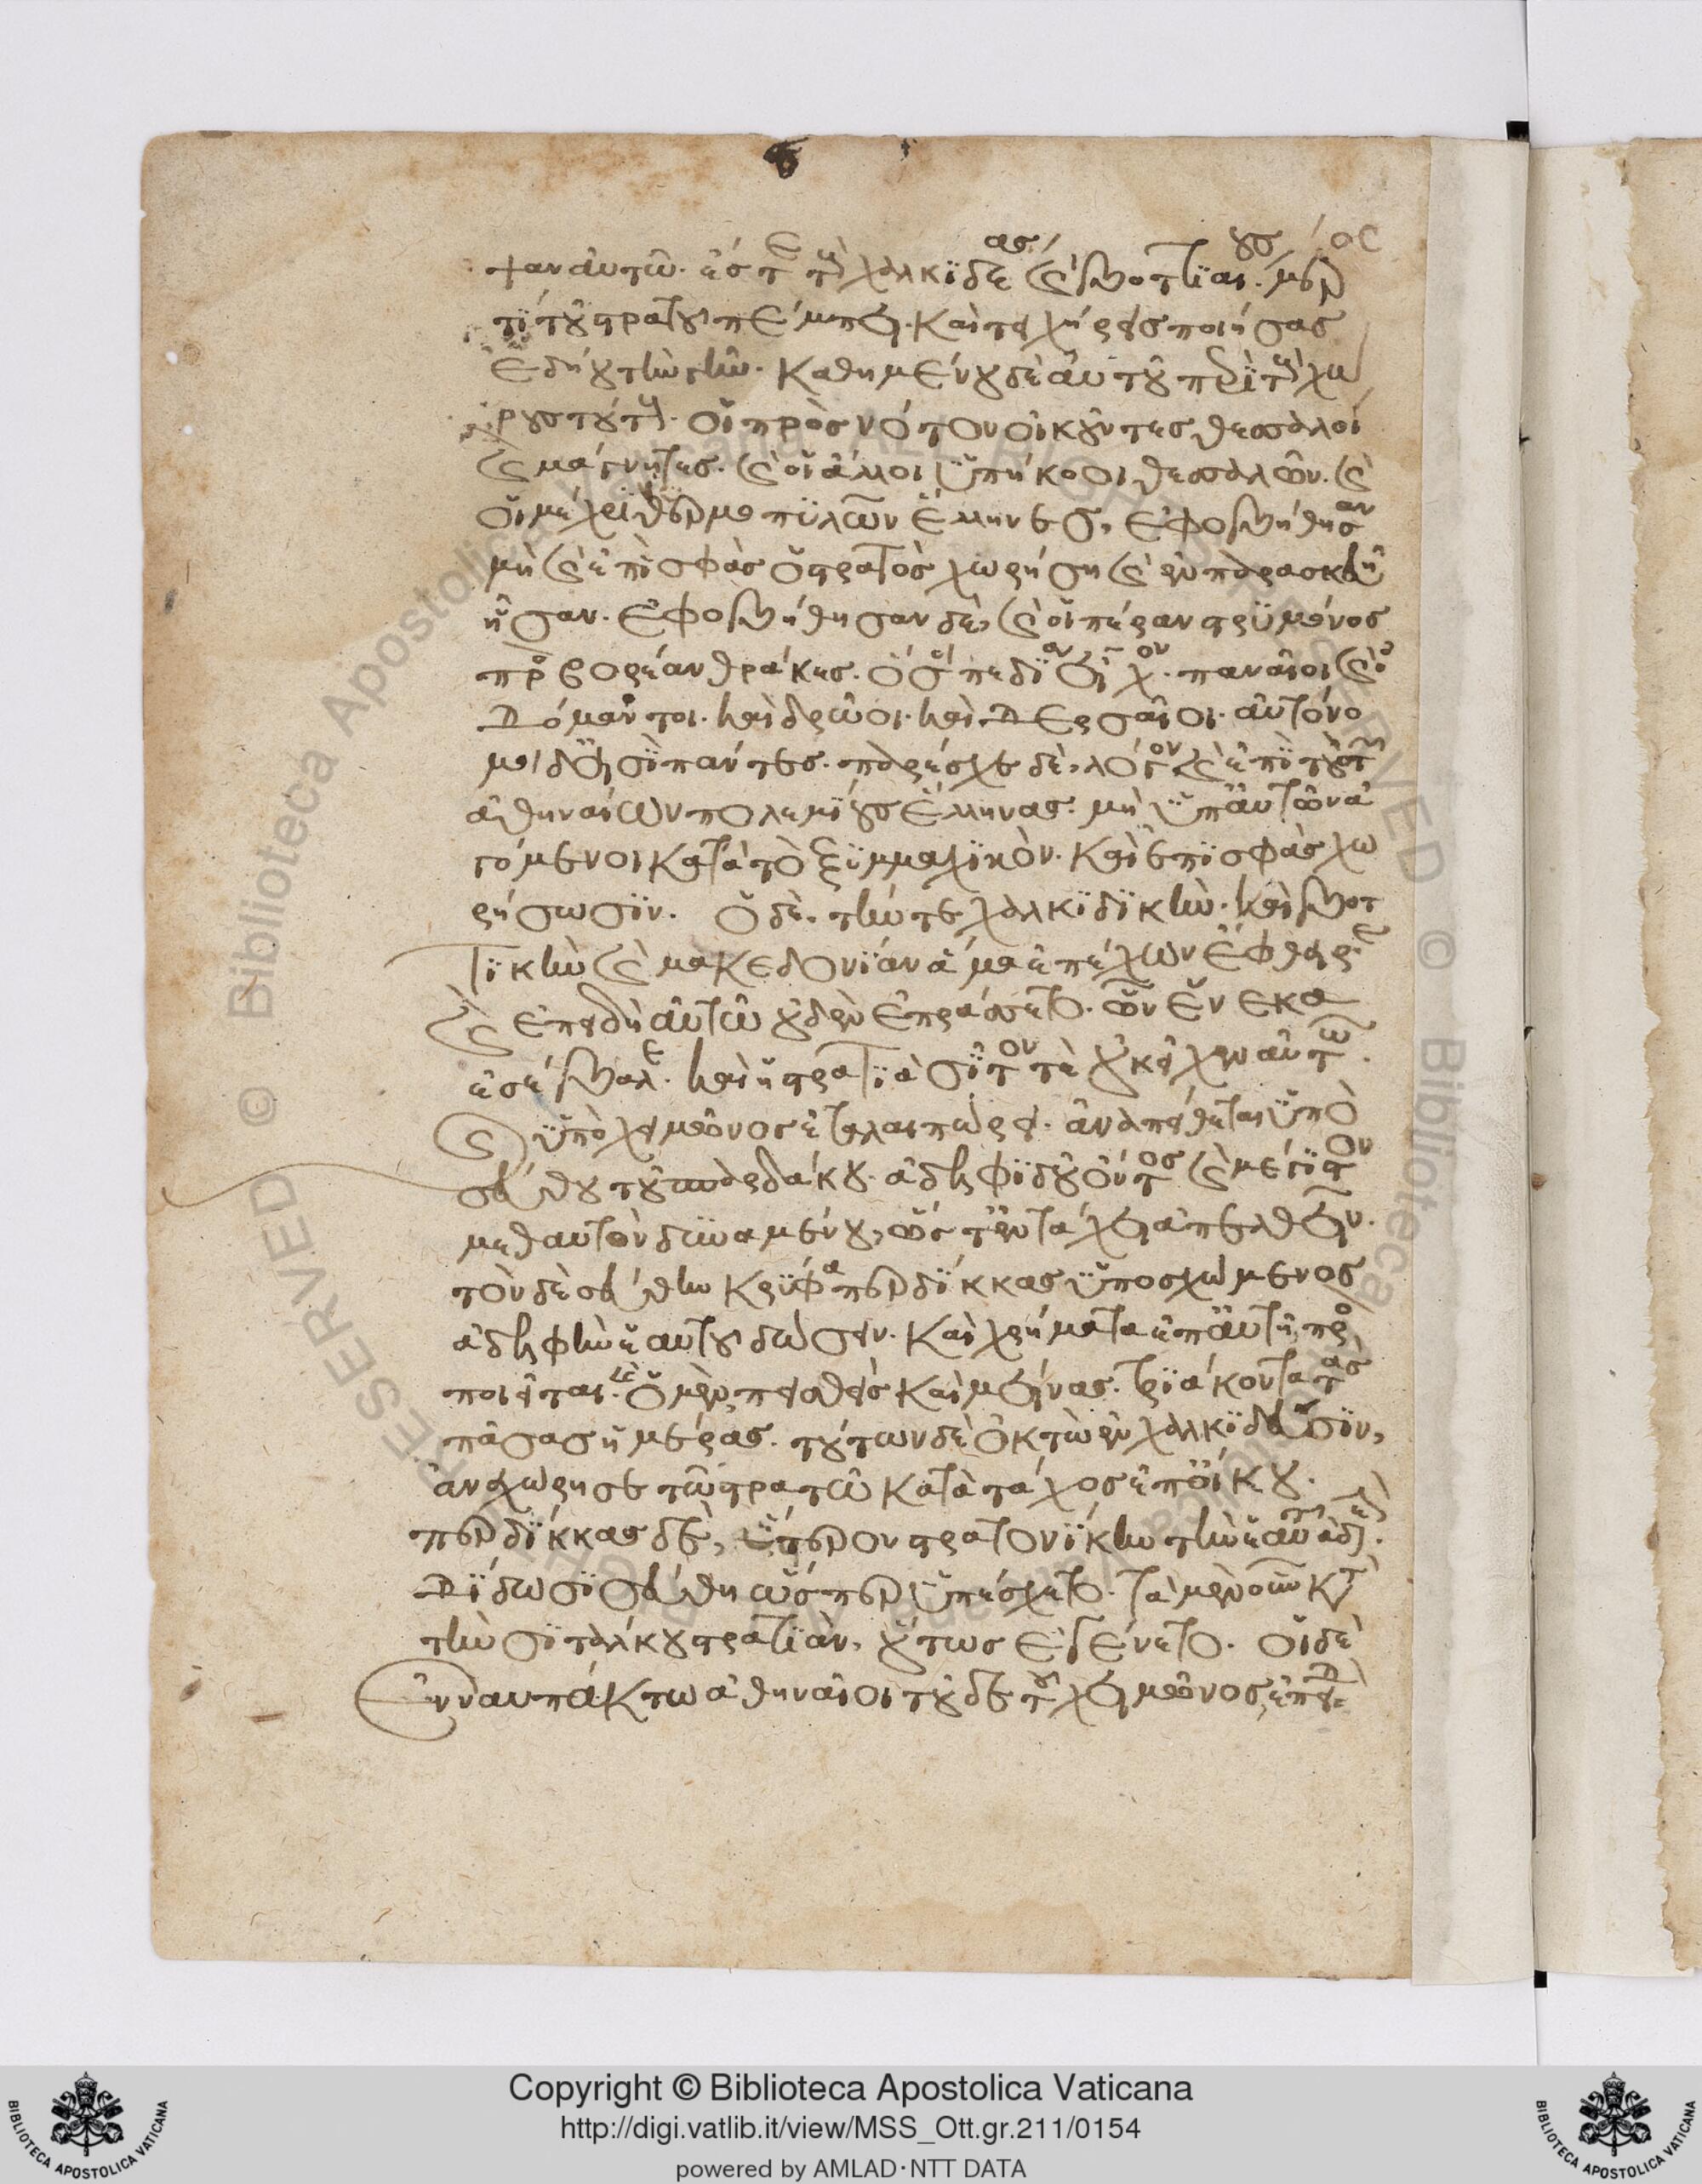 ψαν αὐτῶ. ἔς τε τοὺς χαλκιδέας καὶ βοττιαίους μέρος
τι τοῦ στρατοῦ πέμπει. καὶ τειχήρεις ποιήσας
ἐδήου τὴν γῆν. καθημένου δὲ αὐτοῦ περὶ τοὺς χω
ρους τούτους. οἱ πρὸς νότον οἰκοῦντες θεσσαλοὶ
καὶ μάγνητες. καὶ οἱ ἄλλοι ὑπήκοοι θεσσαλῶν. καὶ
οἱ μέχρι θερμοπυλῶν ἕλληνες, ἐφοβήθησαν
μὴ καὶ ἐπὶ σφὰς ὁ στρατὸς χωρήση καὶ ἐν παρασκευῆ
ἦσαν. ἐφοβήθησαν δὲ, καὶ οἱ πέραν στρυμόνος
πρὸς βορέαν θράκες. ὅσοι πεδία εἶχον. παναῖοι καὶ ὀ
δόμαντοι. καὶ δρῶοι. καὶ δερσαῖοι. αὐτόνο
μοι δ' εἰσὶ πάντες. παρέσχε δὲ, λόγον καὶ ἐπὶ τοὺς τῶν
ἀθηναίων πολεμίους ἕλληνας. μὴ ὑπ' αὐτῶν ἀ
γόμενοι κατὰ τὸ ξυμμαχικὸν. καὶ ἐπὶ σφὰς χω
ρήσωσιν. ὁ δὲ, τήν τε χαλκιδικὴν. καὶ βοτ
τικὴν καὶ μακεδονίαν ἅμα ἐπέχων ἔφθειρε
καὶ ἐπειδὴ αὐτῶ οὐδὲν ἐπράσσετο. ὧν ἕνεκα
ἐσέβαλε. καὶ ἡ στρατιὰ σῖτόν τὲ οὐκ εἶχεν αὐτῶ.
καὶ ὑπὸ χειμῶνος ἐταλαιπώρει. ἀναπείθεται ὑπὸ
σεύθου τοῦ σπαρδάκου. ἀδελφιδοῦ ὄντος καὶ μέγιστον
μεθ' αὑτὸν δυναμένου, ὥστ' ἐν τάχει ἀπελθεῖν.
τὸν δὲ σεύθην κρύφα περδίκκας ὑποσχόμενος
ἀδελφὴν ἑαυτοῦ δώσειν. καὶ χρήματα ἐπ' αὐτῆ προς
ποιεῖται. καὶ ὁ μὲν, πεισθεὶς καὶ μείνας. τριάκοντα τὰς
πάσας ἡμέρας. τούτων δὲ ὀκτὼ ἐν χαλκιδεῦσιν,
ἀνεχώρησε τῶ στρατῶ κατὰ τάχος ἐπ' οἴκου.
περδίκκας δὲ, ὕστερον στρατονίκην τὴν ἑαυτοῦ ἀδελφὴν.
δίδωσι σεύθη ὥσπερ ὑπέσχετο. τὰ μὲν οὖν κατὰ
τὴν σιτάλκου στρατιὰν, οὕτως ἐγένετο. οἱ δὲ
ἐν ναυπάκτω ἀθηναῖοι τοῦδε τοῦ χειμῶνος, ἐπειδὴ